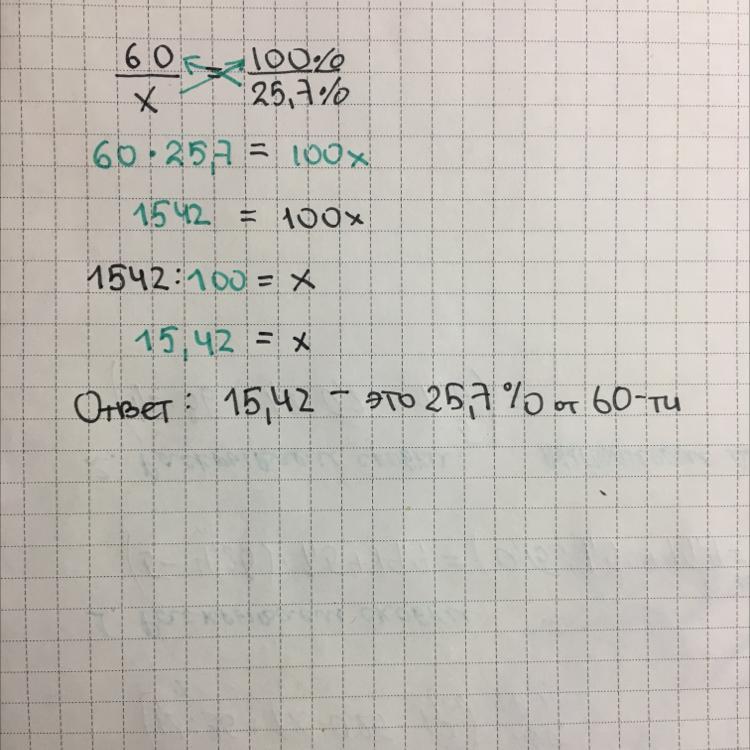 60 / x = 100% / 25,7%
60 · 25,7 = 100x
1542 = 100x
1542 : 100 = x
15,42 = x
Ответ: 15,42 - это 25,7% от 60-ти